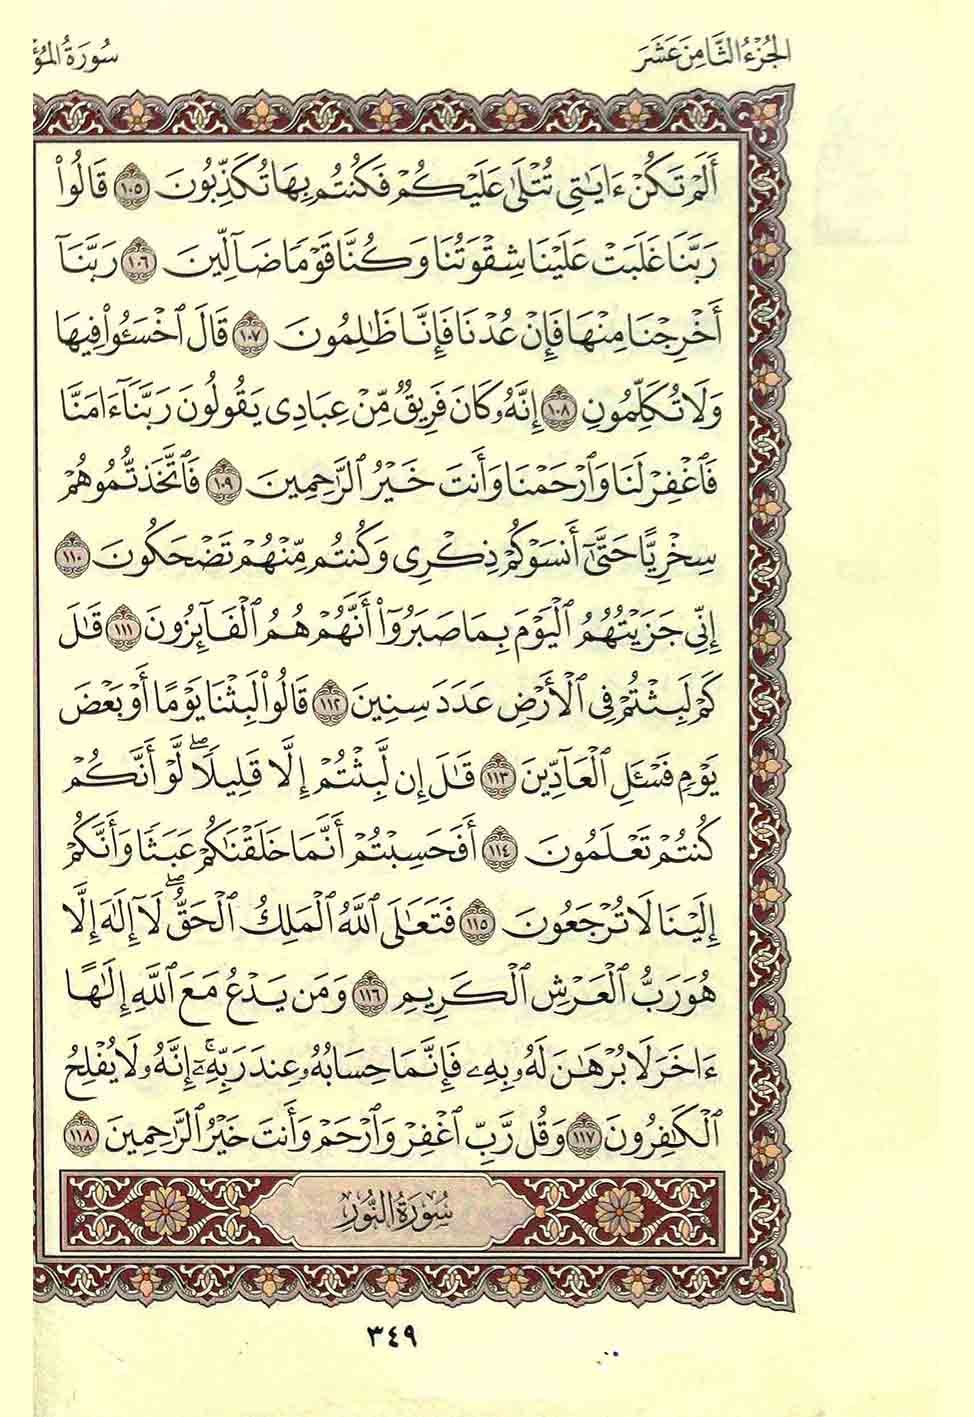 الجُزْءُ الثَّامِنَ عَشَرَ
سُورَةُ المُؤ
أَلَمْ تَكُنْ ءَايَٰتِى تُتْلَىٰ عَلَيْكُمْ فَكُنتُم بِهَا تُكَذِّبُونَ ١٠٥ قَالُوا۟
رَبَّنَا غَلَبَتْ عَلَيْنَا شِقْوَتُنَا وَكُنَّا قَوْمًا ضَآلِّينَ ١٠٦ رَبَّنَآ
أَخْرِجْنَا مِنْهَا فَإِنْ عُدْنَا فَإِنَّا ظَٰلِمُونَ ١٠٧ قَالَ ٱخْسَـُٔوا۟ فِيهَا
وَلَا تُكَلِّمُونِ ١٠٨ إِنَّهُۥ كَانَ فَرِيقٌ مِّنْ عِبَادِى يَقُولُونَ رَبَّنَآ ءَامَنَّا
فَٱغْفِرْ لَنَا وَٱرْحَمْنَا وَأَنتَ خَيْرُ ٱلرَّٰحِمِينَ ١٠٩ فَٱتَّخَذْتُمُوهُمْ
سِخْرِيًّا حَتَّىٰٓ أَنسَوْكُمْ ذِكْرِى وَكُنتُم مِّنْهُمْ تَضْحَكُونَ ١١٠
إِنِّى جَزَيْتُهُمُ ٱلْيَوْمَ بِمَا صَبَرُوٓا۟ أَنَّهُمْ هُمُ ٱلْفَآئِزُونَ ١١١ قَٰلَ
كَمْ لَبِثْتُمْ فِى ٱلْأَرْضِ عَدَدَ سِنِينَ ١١٢ قَالُوا۟ لَبِثْنَا يَوْمًا أَوْ بَعْضَ
يَوْمٍ فَسْـَٔلِ ٱلْعَآدِّينَ ١١٣ قَٰلَ إِن لَّبِثْتُمْ إِلَّا قَلِيلًا ۖ لَّوْ أَنَّكُمْ
كُنتُمْ تَعْلَمُونَ ١١٤ أَفَحَسِبْتُمْ أَنَّمَا خَلَقْنَٰكُمْ عَبَثًا وَأَنَّكُمْ
إِلَيْنَا لَا تُرْجَعُونَ ١١٥ فَتَعَٰلَى ٱللَّهُ ٱلْمَلِكُ ٱلْحَقُّ ۖ لَآ إِلَٰهَ إِلَّا
هُوَ رَبُّ ٱلْعَرْشِ ٱلْكَرِيمِ ١١٦ وَمَن يَدْعُ مَعَ ٱللَّهِ إِلَٰهًا
ءَاخَرَ لَا بُرْهَٰنَ لَهُۥ بِهِۦ فَإِنَّمَا حِسَابُهُۥ عِندَ رَبِّهِۦٓ ۚ إِنَّهُۥ لَا يُفْلِحُ
ٱلْكَٰفِرُونَ ١١٧ وَقُل رَّبِّ ٱغْفِرْ وَٱرْحَمْ وَأَنتَ خَيْرُ ٱلرَّٰحِمِينَ ١١٨
سُورَةُ النُّورِ
٣٤٩